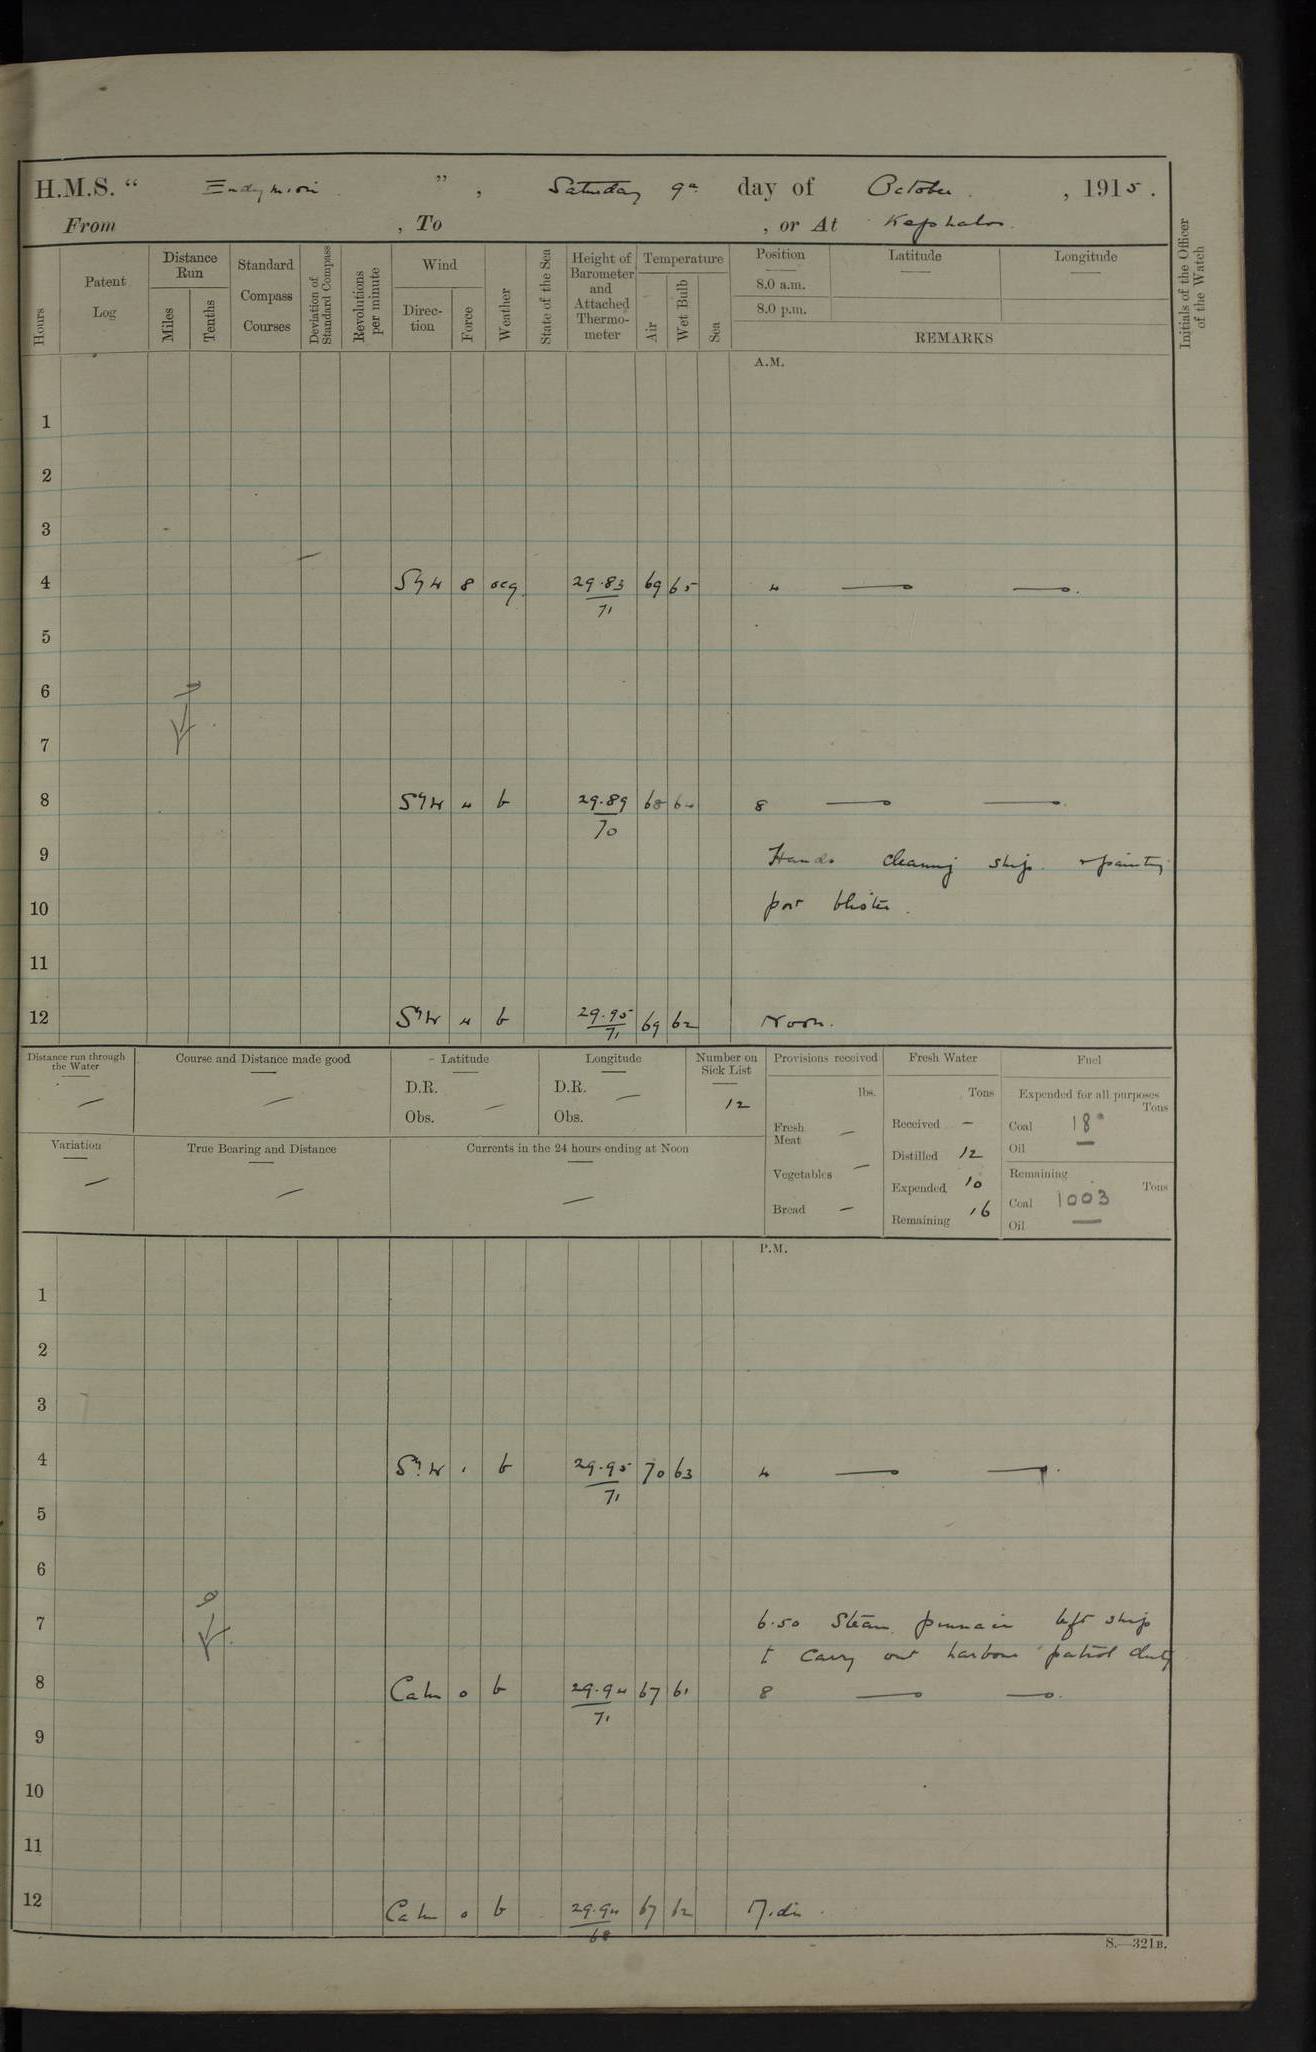 H.M.S. “ Endymion ” , Saturday 9th day of October , 1915 .
From , To , or At Kephalos.
Hours
Patent Log
Distance Run
Miles
Tenths
Standard Compass Courses
Deviation of Standard Compass
Revolutions per minute
Wind
Direc-tion
Force
Weather
State of the Sea
Height of Barometer and Attached Thermo-meter
Temperature
Air
Wet Bulb
Sea
Position
8.0 a.m.
8.0 p.m.
Latitude
Longitude
REMARKS
Initials of the Officer of the Watch
A.M.
1
2
3
4 8 ocg 29.83 69 65 4
71
5
6
7
8 4 b 29.89 68 64 8
70
9 Hands cleaning ship & painting
10 port blister.
11
12 4 b 29.95 69 62 Noon.
71
Distance run through the Water
Course and Distance made good
Latitude
D.R.
Obs.
Longitude
D.R.
Obs.
Number on Sick List
12
Provisions received
lbs.
Fresh Meat —
Vegetables —
Bread —
Fresh Water
Tons
Received —
Distilled 12
Expended 10
Remaining 16
Fuel
Expended for all purposes
Tons
Coal 18
Oil —
Remaining
Tons
Coal 1003
Oil —
Variation
True Bearing and Distance
Currents in the 24 hours ending at Noon
P.M.
1
2
3
4 1 b 29.95 70 63 4
71
5
6
7 6.50 Steam pinnace left ship
to carry out harbour patrol duty
8 Calm 0 b 29.94 67 61 8
71
9
10
11
12 Calm 0 b 29.94 67 62 Midt.
68
S.—321B.